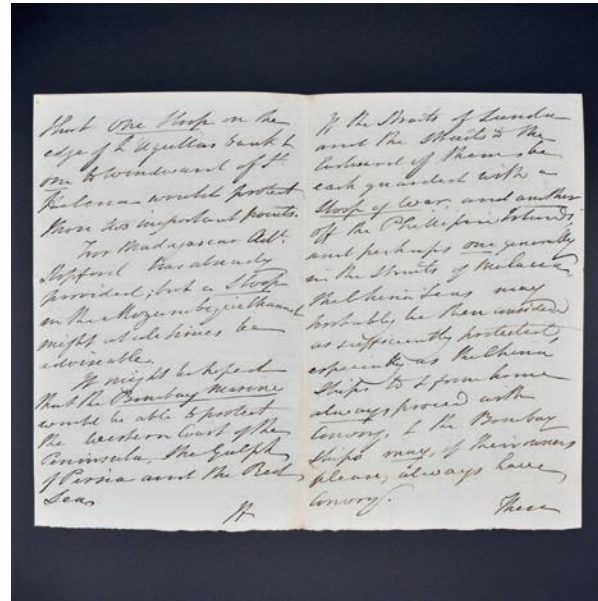 that one Sloop on the
edge of L'Agullas bank &
one to windward of St.
Helena would protect
these two important points.
For Madagascar Adl.
Stopford has already
provided; but a Sloop
in the Mozambique Channel
might at all times be
adviseable.
It might be hoped
that the Bombay Marine
would be able to protect
the Western Coast of the
Peninsula, the Gulph
of Persia and the Red
Sea.
If
If the Straits of Sunda
and the Straits to the
Eastward of them be
each guarded with a
Sloop of War, and another
off the Phillipine Islands
and perhaps one generally
in the Straits of Malacca,
the China Seas may
probably be then considered
as sufficiently protected,
especially as the China
Ships to & from home
always proceed with
Convoy, & the Bombay
Ships may, if their owners
please, always have
Convoy.
These